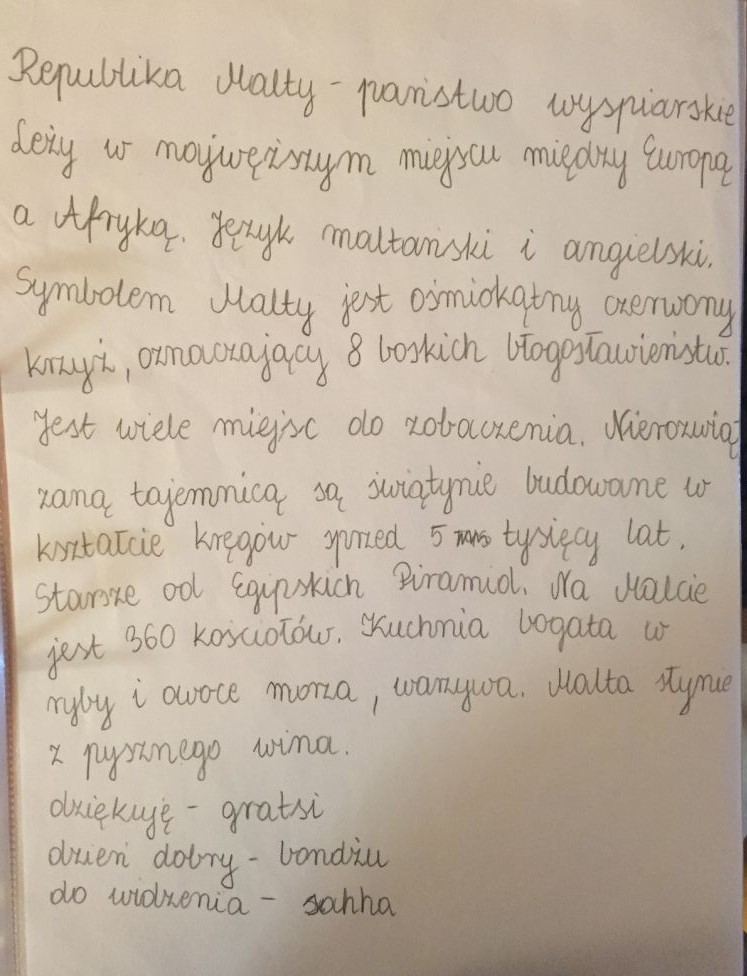 Republika Malty - państwo wyspiarskie
Leży w najwęższym miejscu między Europą
a Afryką. Język maltański i angielski.
Symbolem Malty jest ośmiokątny czerwony
krzyż, oznaczający 8 boskich błogosławieństw.
Jest wiele miejsc do zobaczenia. Nierozwią
zaną tajemnicą są świątynie budowane w
kształcie kręgów sprzed 5 tysięcy lat.
Starsze od Egipskich Piramid. Na Malcie
jest 360 kościołów. Kuchnia bogata w
ryby i owoce morza, warzywa. Malta słynie
z pysznego wina.
dziękuję - gratsi
dzień dobry - bondżu
do widzenia - sahha